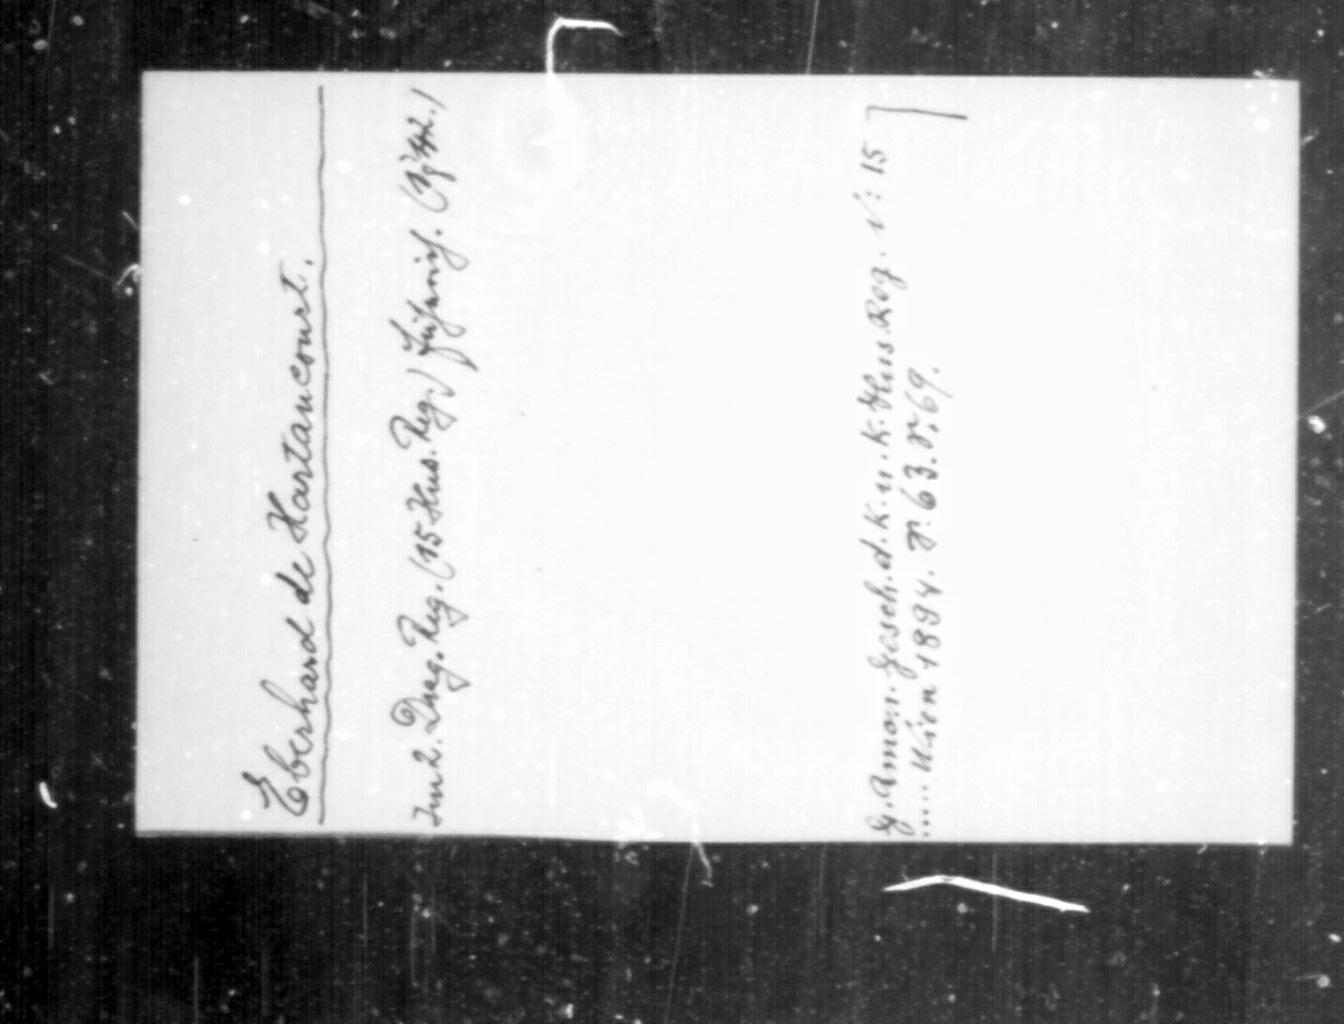 Eberhard de Hartancourt.
Im 2. Drag. Reg. (15 Hus. Reg.) Fähnrich.
G. Amon. Gesch. d. k. u. k. Hus. Reg. N: 15
..... Wien 1894. P: 63. P: 69.